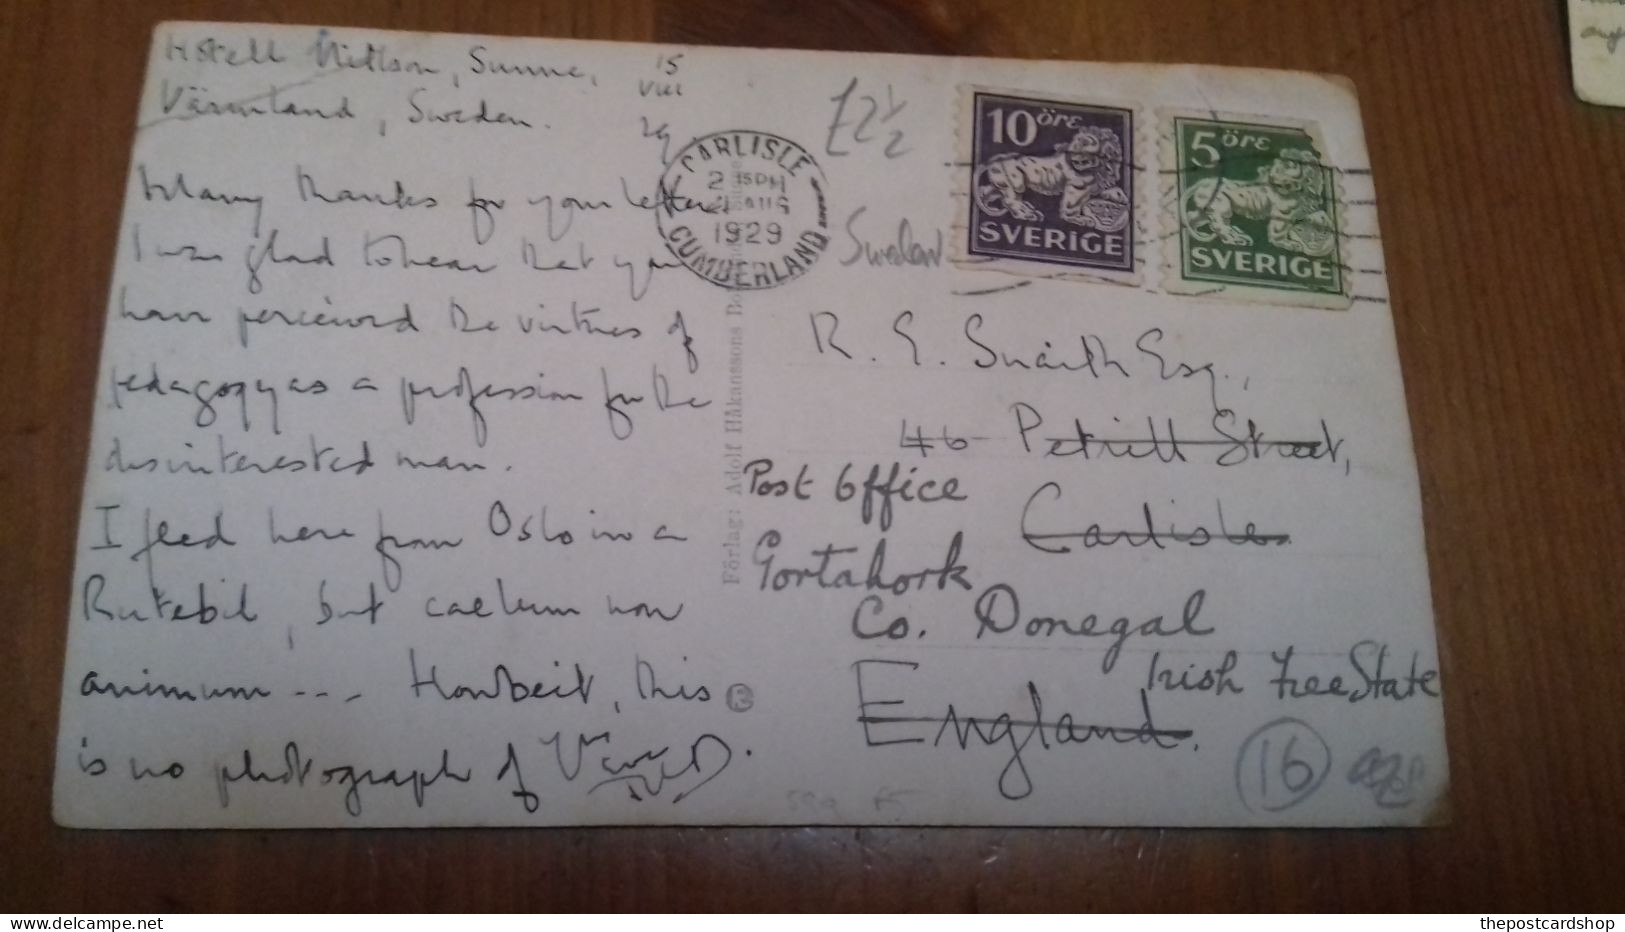 Hotell Nillson, Sunne,
Värmland, Sweden.
15
VIII
29
Many thanks for your letter.
I was glad to hear that you
have perceived the virtues of
pedagogy as a profession for the
disinterested man.
I fled here from Oslo in a
Rutebil, but caelum non
animum --- Howbeit, this
is no photograph of
£2½
Sweden
CARLISLE
2 15 PM
AUG
1929
CUMBERLAND
10 öre
SVERIGE
5 öre
SVERIGE
Förlag: Adolf Håkanssons
R. E. Snaith Esq.,
46 Petrill Street,
Carlisle
Post Office
Gortahork
Co. Donegal
Irish Free State
England.
16
thepostcardshop